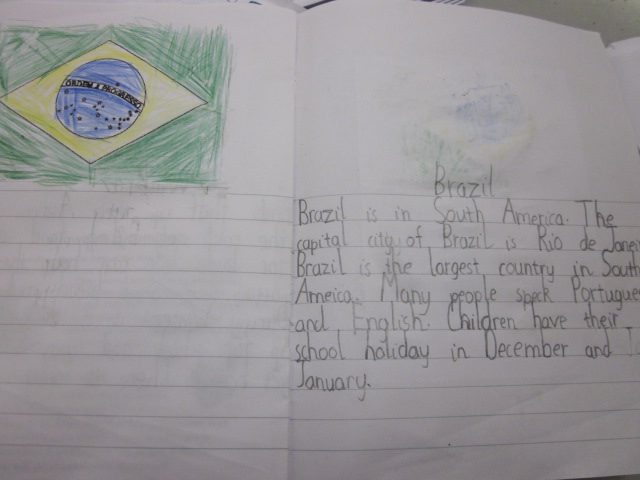 ORDEM A PROGRESSO
Brazil
Brazil is in South America. The
capital city of Brazil is Rio de Janeir
Brazil is the largest country in South
Ameica. Many people speck Portugues
and English. Children have their
school holiday in December and Ja
January.